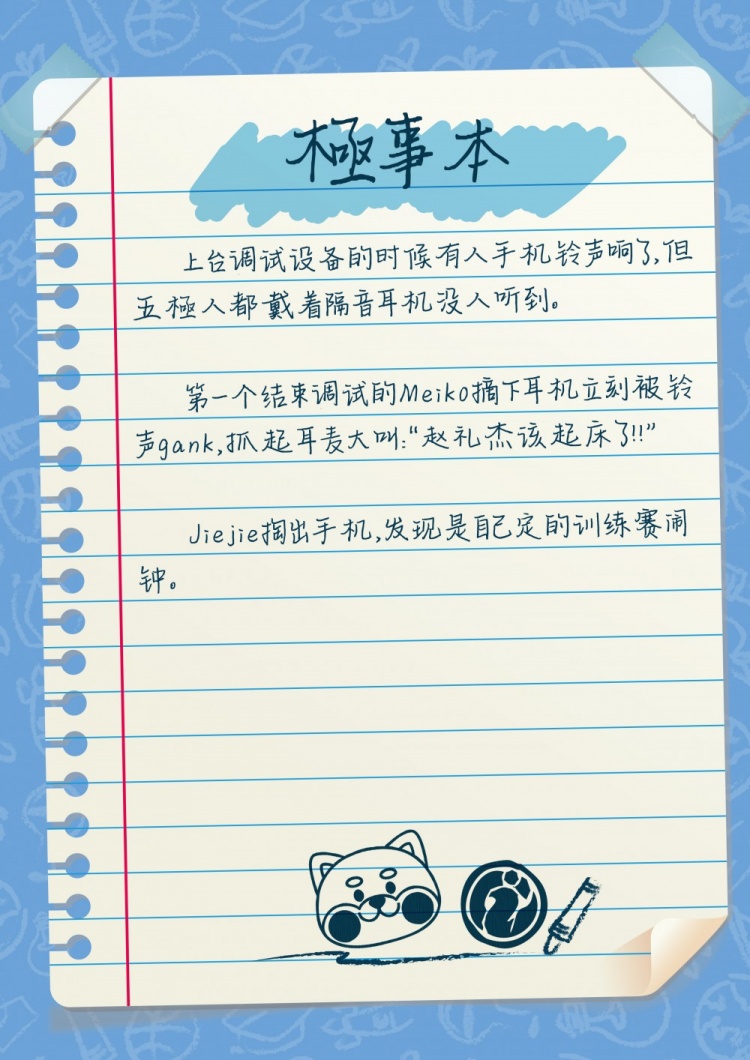 極事本
上台调试设备的时候有人手机铃声响了,但
五極人都戴着隔音耳机没人听到。
第一个结束调试的Meiko摘下耳机立刻被铃
声gank,抓起耳麦大叫:“赵礼杰该起床了!!”
Jiejie掏出手机,发现是自己定的训练赛闹
钟。